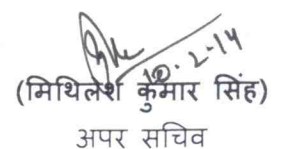 10.2-14
(मिथिलेश कुमार सिंह)
अपर सचिव